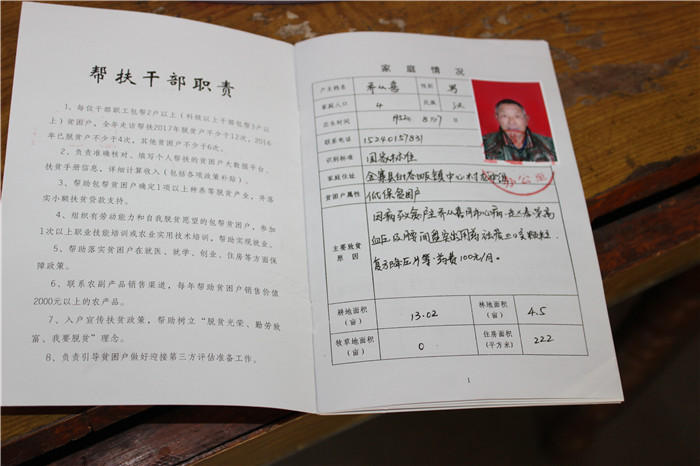 帮扶干部职责
1、每位干部职工包帮2户以上（科级以上干部包帮3户以
上）贫困户，全年走访帮扶2017年脱贫户不少于12次，2016
年已脱贫户不少于4次，其他贫困户不少于6次。
2、负责准确核对、填写个人帮扶的贫困户大数据平台、
扶贫手册信息，详细计算收入（包括各项政策补贴）。
3、帮助包帮贫困户确定1项以上种养等脱贫产业，并落
实小额扶贫贷款支持。
4、组织有劳动能力和自我脱贫愿望的包帮贫困户，参加
1次以上职业技能培训或农业实用技术培训，帮助实现就业。
5、帮助落实贫困户在就医、就学、创业、住房等方面保
障政策。
6、联系农副产品销售渠道，每年帮助贫困户销售价值
2000元以上的农产品。
7、入户宣传扶贫政策，帮助树立“脱贫光荣、勤劳致
富、我要脱贫”理念。
8、负责引导贫困户做好迎接第三方评估准备工作。
家庭情况
户主姓名 乔从喜 性别 男
家庭人口 4 民族 汉
出生时间
联系电话 15240157831
识别标准 国家标准
家庭住址 金寨县白塔畈镇中心村
贫困户属性 低保贫困户
主要致贫
原因
因病致贫户主乔从喜
血压及腰间盘突出
复方降压片等药费100元/月。
耕地面积
（亩） 13.02 林地面积
（亩） 4.5
牧草地面积
（亩） 0 住房面积
（平方米） 222
1